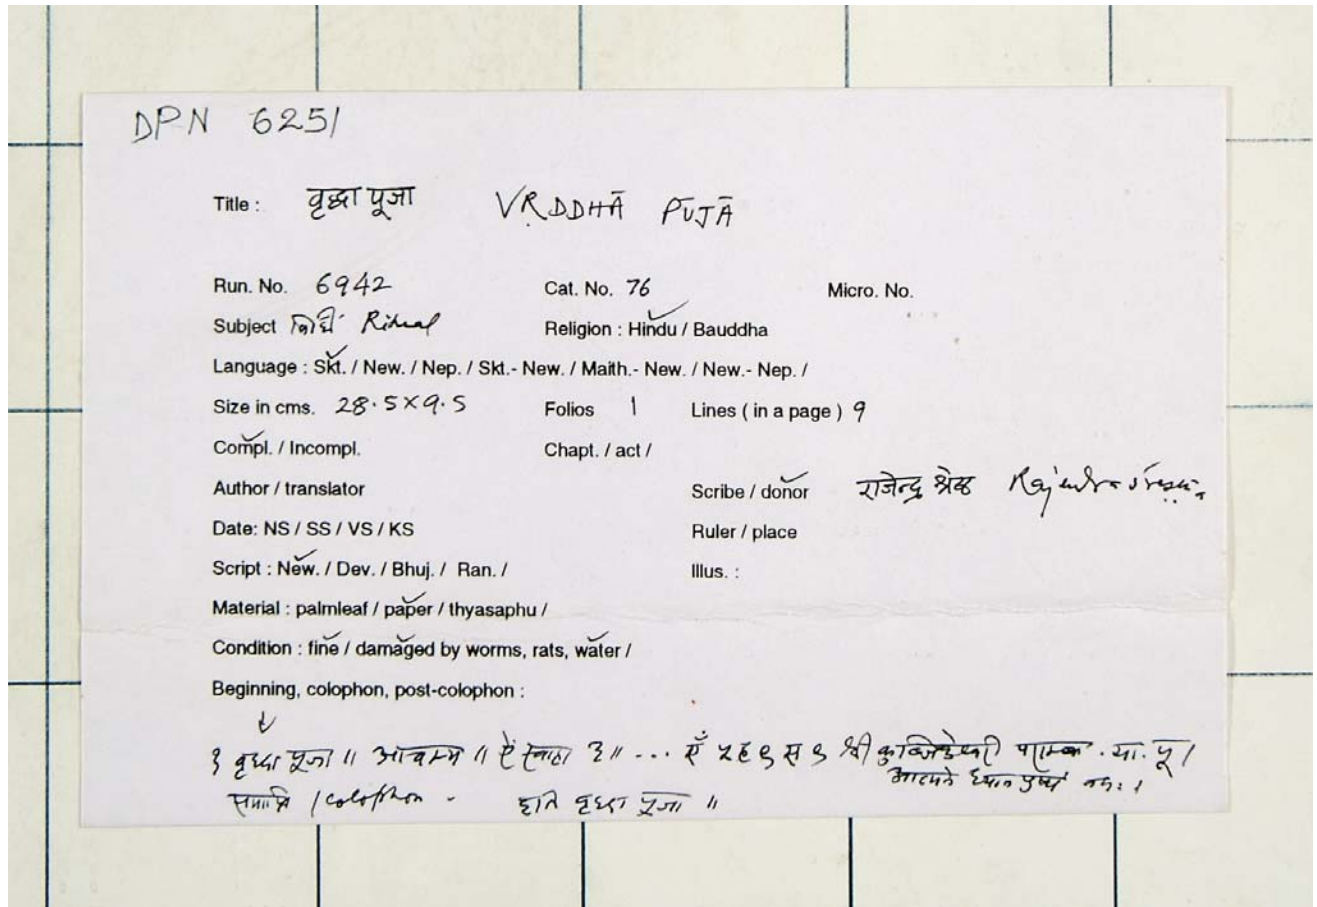 DPN 6251
Title : वृद्धा पूजा VṚDDHĀ PŪJĀ
Run. No. 6942 Cat. No. 76 Micro. No.
Subject विधि Ritual Religion : Hindu / Bauddha
Language : Skt. / New. / Nep. / Skt.- New. / Maith.- New. / New.- Nep. /
Size in cms. 28.5 X 9.5 Folios 1 Lines ( in a page ) 9
Compl. / Incompl. Chapt. / act /
Author / translator Scribe / donor राजेन्द्र श्रेष्ठ Rajendra
Date: NS / SS / VS / KS Ruler / place
Script : New. / Dev. / Bhuj. / Ran. / Illus. :
Material : palmleaf / paper / thyasaphu /
Condition : fine / damaged by worms, rats, water /
Beginning, colophon, post-colophon :
वृद्धा पूजा ॥ आचम्य ॥ ऐं स्वाहा ३ ॥ ... श्री . पू ।
आत्मने ध्यान पुष्पं नमः ।
समाप्ति / colophon - इति वृद्धा पूजा ॥